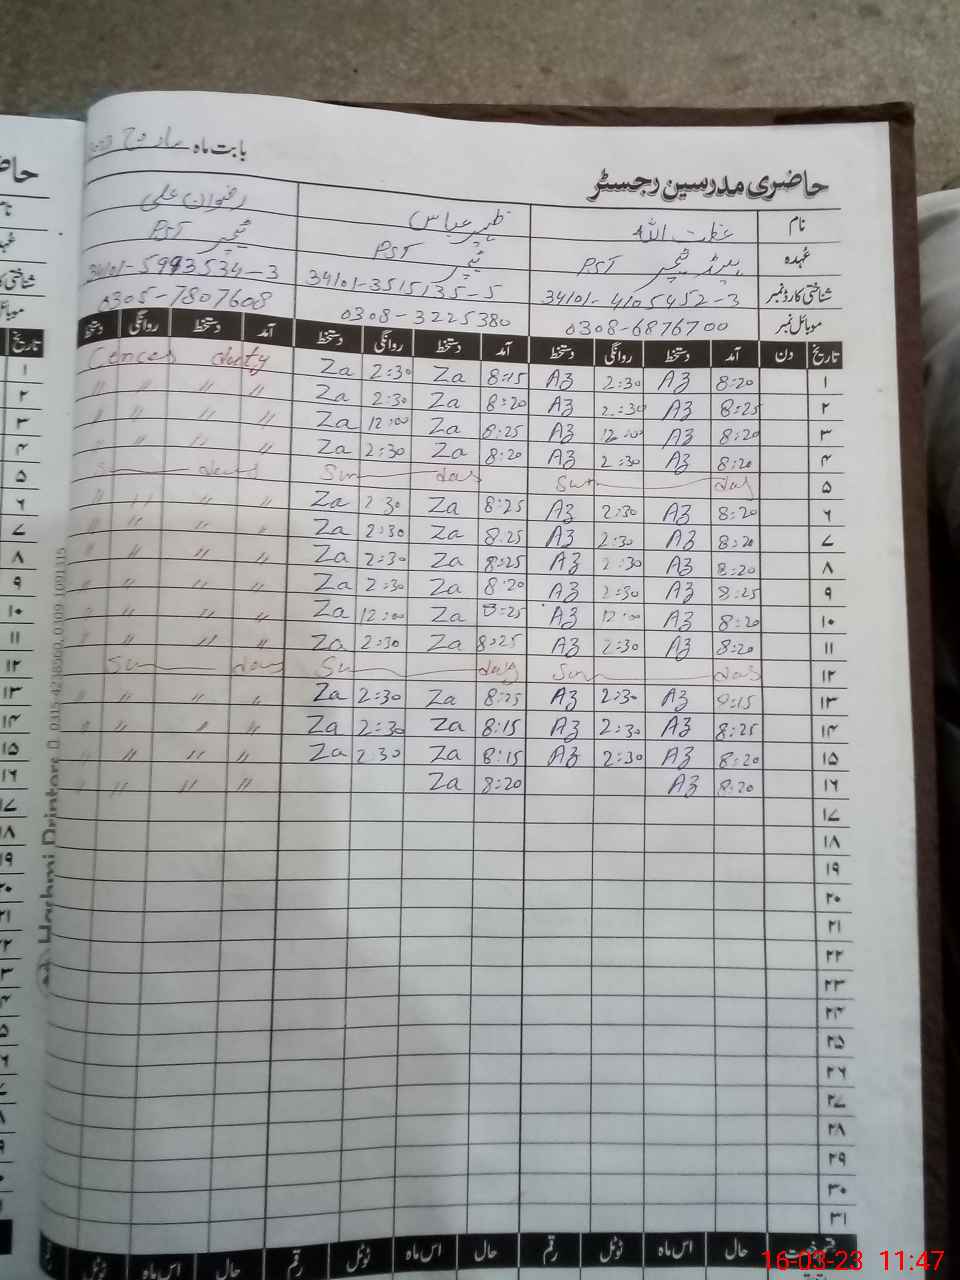 بابت ماہ مارچ
حاضری مدرسین رجسٹر
نام عظمت اللہ ظہیر عباس رضوان علی
عہدہ ہیڈ ٹیچر PST ٹیچر PST ٹیچر PST
شناختی کارڈ نمبر 34101-4105452-3 34101-3515135-5 34101-5993534-3
موبائل نمبر 0308-6876700 0308-3225380 0305-7807608
تاریخ دن آمد دستخط روانگی دستخط آمد دستخط روانگی دستخط آمد دستخط روانگی دستخط
۱ 8:20 Az 2:30 Az 8:15 Za 2:30 Za duty
۲ 8:25 Az 2:30 Az 8:20 Za 2:30 Za " " " "
۳ 8:20 Az 12:00 Az 8:25 Za 12:00 Za " " " "
۴ 8:20 Az 2:30 Az 8:20 Za 2:30 Za " " " "
۵ Sun day Sun day
۶ 8:20 Az 2:30 Az 8:25 Za 2:30 Za " " " "
۷ 8:20 Az 2:30 Az 8:25 Za 2:30 Za " " " "
۸ 8:20 Az 2:30 Az 8:25 Za 2:30 Za " " " "
۹ 8:25 Az 2:30 Az 8:20 Za 2:30 Za " " " "
۱۰ 8:20 Az 12:00 Az 8:25 Za 12:00 Za " " " "
۱۱ 8:20 Az 2:30 Az 8:25 Za 2:30 Za " " " "
۱۲ Sun day Sun day Sun day
۱۳ 8:15 Az 2:30 Az 8:25 Za 2:30 Za " " " "
۱۴ 8:25 Az 2:30 Az 8:15 Za 2:30 Za " " " "
۱۵ 8:20 Az 2:30 Az 8:15 Za 2:30 Za " " " "
۱۶ 8:20 Az 8:20 Za " " " "
۱۷
۱۸
۱۹
۲۰
۲۱
۲۲
۲۳
۲۴
۲۵
۲۶
۲۷
۲۸
۲۹
۳۰
۳۱
حال اس ماہ ٹوٹل رقم حال اس ماہ ٹوٹل رقم حال اس ماہ ٹوٹل
Hashmi Printers
16-03-23 11:47